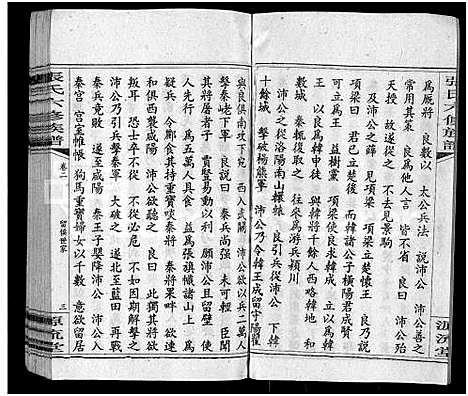 張氏六修族譜
源流堂
爲厩將 良數以 太公兵法 說沛公 沛公善之
常用其策 良爲他人言 皆不省 良曰 沛公殆
天授 故遂從之 不去見景駒
及沛公之薛 見項梁 項梁立楚懷王 良乃說
項梁曰 君已立楚後 而韓諸公子橫陽君成賢
王 以良爲韓申徒 與韓將千餘人西略韓地 得
數城 秦輒復取之 往來爲游兵潁川
沛公之從洛陽南出轘轅 良引兵從沛公 下韓
十餘城 擊破楊熊軍 沛公乃令韓王成留守陽翟
與良俱南攻下宛 西入武關 沛公欲以兵二萬人
擊秦嶢下軍 良說曰 秦兵尚强 未可輕 臣聞
其將屠者子 賈豎易動以利 願沛公且留壁 使
人先行 爲五萬人具食 益爲張旗幟諸山上 爲
疑兵 令酈食其持重寶啗秦將 秦將果畔 欲連
和俱西襲咸陽 沛公欲聽之 良曰 此獨其將欲
叛耳 恐士卒不從 不從必危 不如因其解擊之
沛公乃引兵擊秦軍 大破之 遂北至藍田 再戰
秦兵竟敗 遂至咸陽 秦王子嬰降沛公 沛公入
秦宮 宮室帷帳 狗馬重寶婦女以千數 意欲留居
張氏六修族譜
卷二
留侯世家
三
源流堂